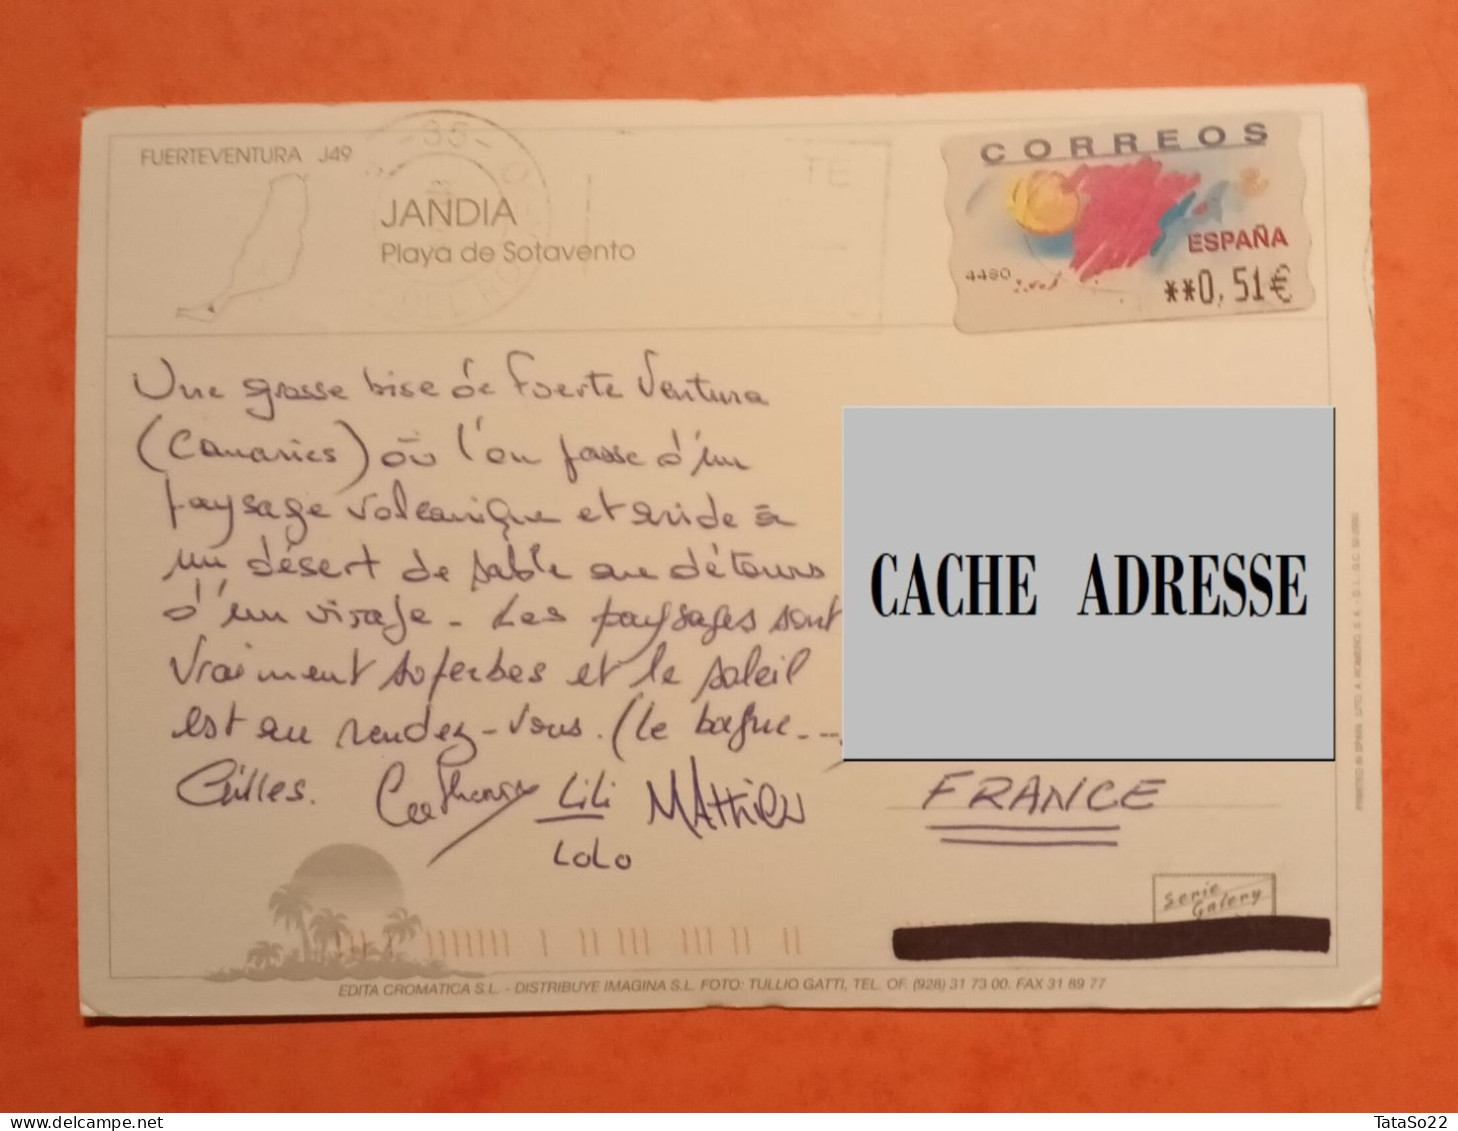 FUERTEVENTURA J49
JANDIA
Playa de Sotavento
-35-
TE
CORREOS
ESPAÑA
4480
**0,51€
Une grosse bise de Fuerte Ventura
(Canaries) où l'on passe d'un
paysage volcanique et aride à
un désert de sable au détours
d'un virage. Les paysages sont
vraiment superbes et le soleil
est au rendez-vous. (le bagne...
Gilles. Catherine LiLi MATHiEU
LoLo
CACHE ADRESSE
FRANCE
Serie
Galery
EDITA CROMATICA S.L. - DISTRIBUYE IMAGINA S.L. FOTO: TULLIO GATTI, TEL. OF. (928) 31 73 00. FAX 31 89 77
TataSo22